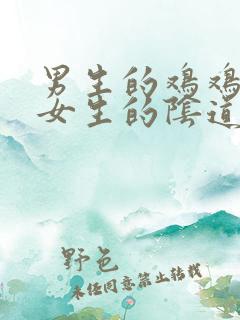 男生的鸡鸡
女生的阴道
野色
未经同意禁止转载